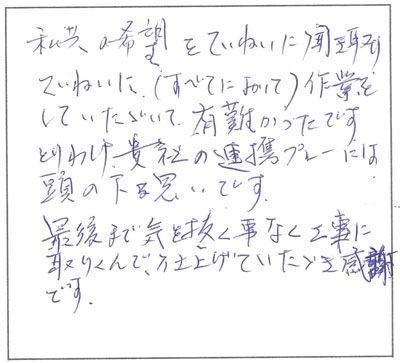 私共の希望をていねいに聞き取り
ていねいに、(すべてにおいて)作業を
していただいて、有難かったです
とりわけ、貴社の連携プレーには
頭の下る思いです。
最後まで気を抜く事なく工事に
取りくんで、仕上げていたゞき感謝
です。